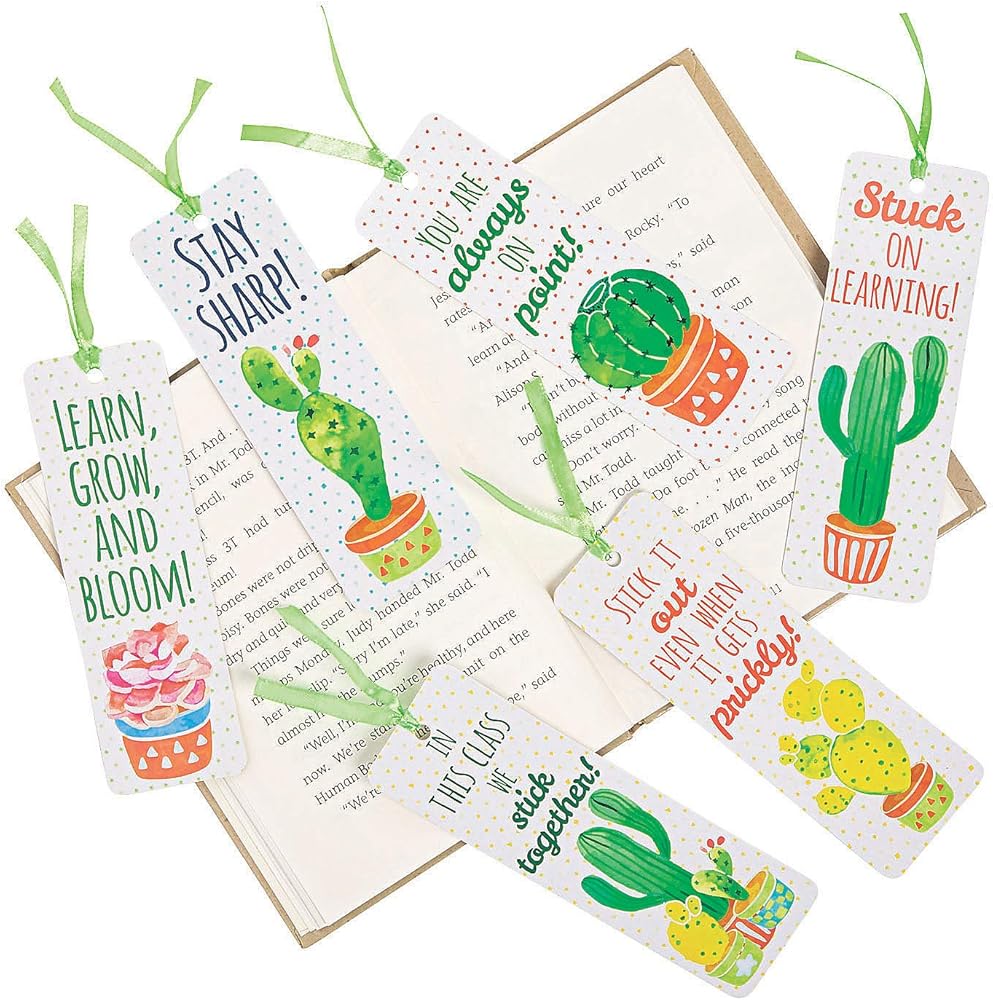 LEARN,
GROW,
AND
BLOOM!
STAY
SHARP!
YOU ARE
always
ON
point!
Stuck
ON
LEARNING!
STICK IT
out
EVEN WHEN
IT GETS
prickly!
IN
THIS CLASS
WE
stick
together!
3T. And
in Mr. Todd
pencil, was
3T had
Bones were not drip
noisy. Bones were not
dry and quiet and very
Things were
Judy handed Mr. Todd
I'm late," she said. "I
slip.
almost
"Well, I'm
you're healthy, and here
now. We're start
unit on the
Human
said
"We're
ure our heart
Rocky. "To
said
man
rates
"An
son
learn at
Alison S.
"Can't b
song
body without
connected
miss a lot
"Don't worry.
Mr. Todd.
Mr. Todd taught
Da foot
He read them
Frozen Man, the
a five-thousand
11